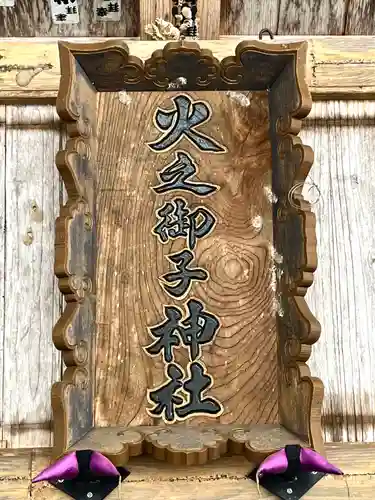 火之御子神社